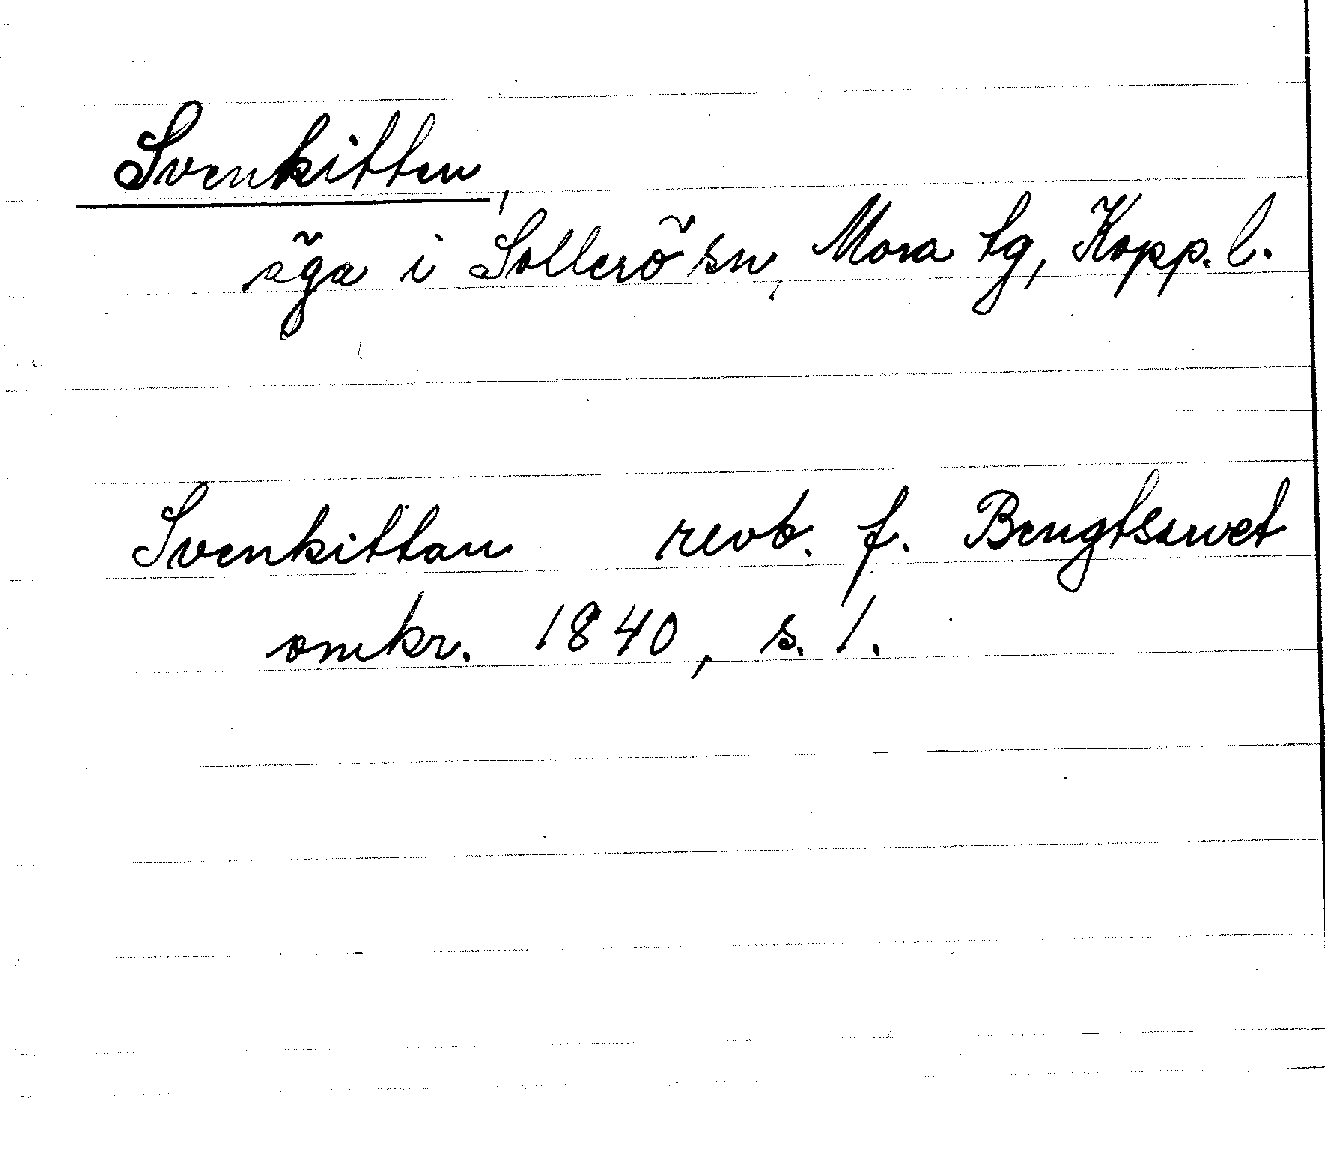 Svenkitten,
äga i Sollerö sn, Mora tg, Kopp. l.
Svenkittan revb. f. Bengtsarvet
omkr. 1840, s. 1.